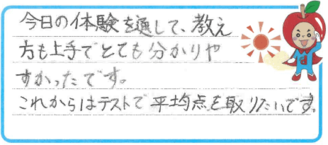 今日の体験を通して、教え
方も上手でとても分かりや
すかったです。
これからはテストで平均点を取りたいです。